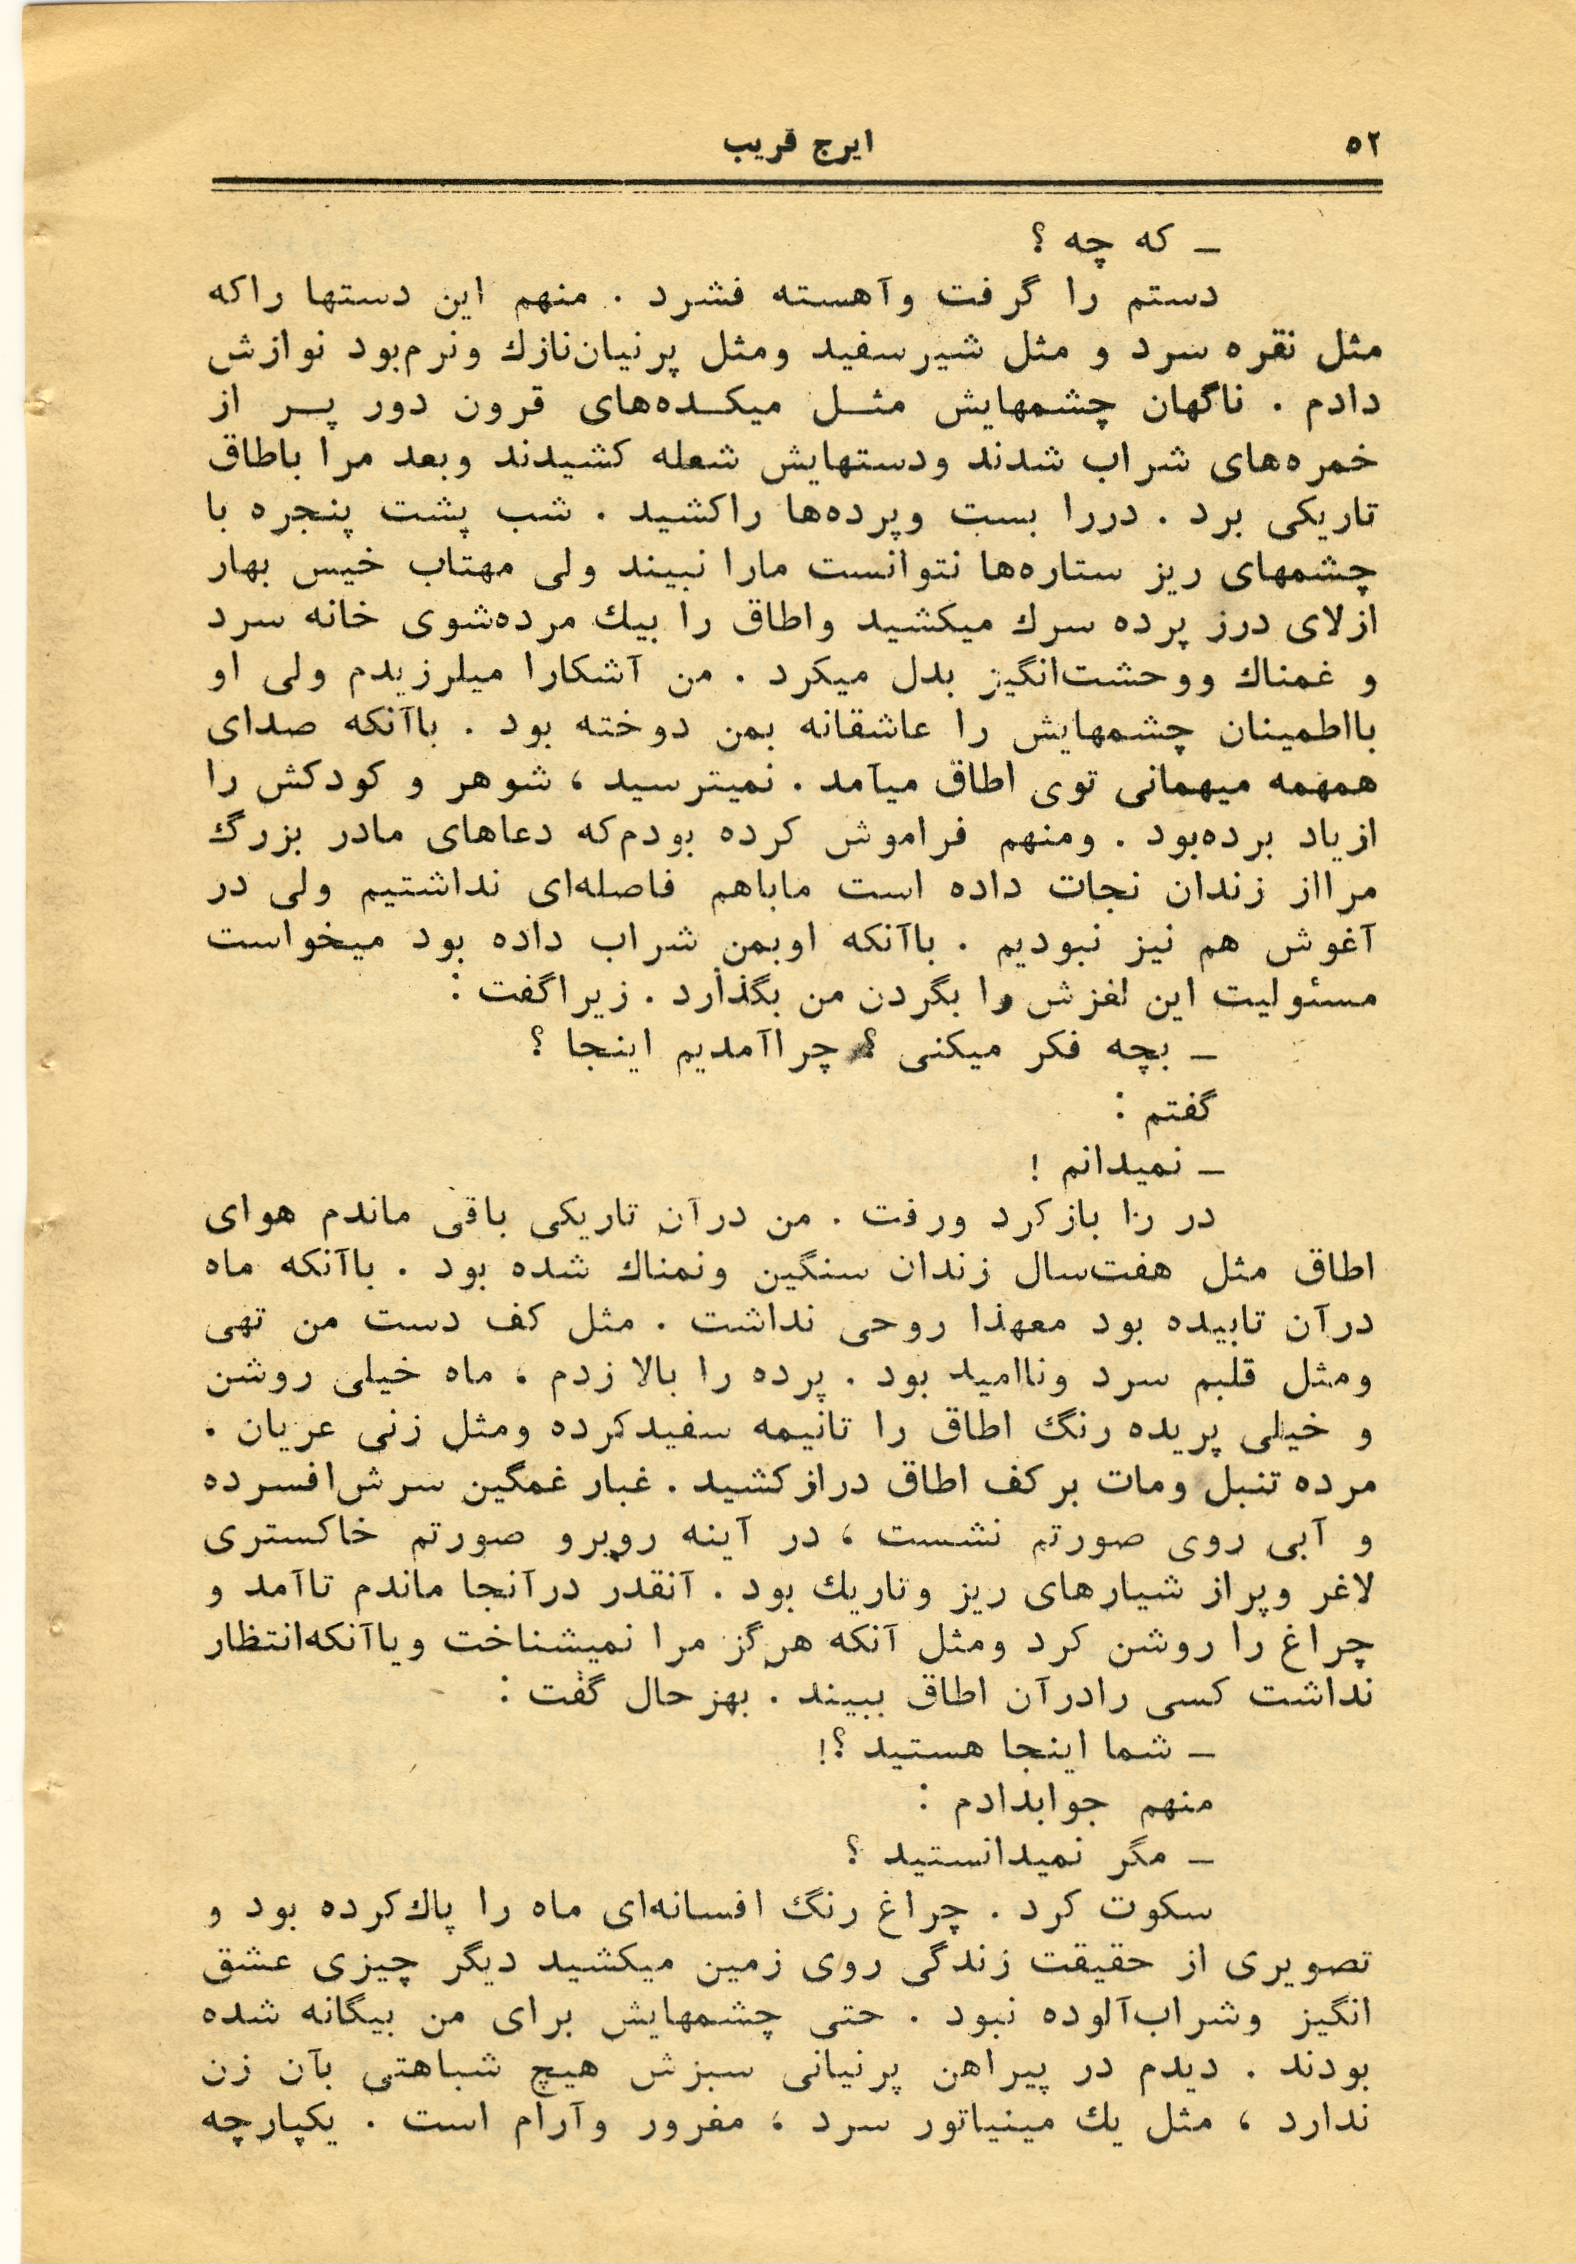 ۵۲
ایرج قریب
ـ که چه ؟
دستم را گرفت وآهسته فشرد . منهم این دستها راکه
مثل نقره سرد و مثل شیرسفید ومثل پرنیان‌نازك ونرم‌بود نوازش
دادم . ناگهان چشمهایش مثـل میکـده‌های قرون دور پـر از
خمره‌های شراب شدند ودستهایش شعله کشیدند وبعد مرا باطاق
تاریکی برد . دررا بست وپرده‌ها راکشید . شب پشت پنجره با
چشمهای ریز ستاره‌ها نتوانست مارا نبیند ولی مهتاب خیس بهار
ازلای درز پرده سرك میکشید واطاق را بیك مرده‌شوی خانه سرد
و غمناك ووحشت‌انگیز بدل میکرد . من آشکارا میلرزیدم ولی او
بااطمینان چشمهایش را عاشقانه بمن دوخته بود . باآنکه صدای
همهمه میهمانی توی اطاق میآمد . نمیترسید ، شوهر و کودکش را
ازیاد برده‌بود . ومنهم فراموش کرده بودم‌که دعاهای مادر بزرگ
مرااز زندان نجات داده است ماباهم فاصله‌ای نداشتیم ولی در
آغوش هم نیز نبودیم . باآنکه اوبمن شراب داده بود میخواست
مسئولیت این لغزش را بگردن من بگذارد . زیراگفت :
ـ بچه فکر میکنی ؟ چراآمدیم اینجا ؟
گفتم :
ـ نمیدانم !
در را بازکرد ورفت . من درآن تاریکی باقی ماندم هوای
اطاق مثل هفت‌سال زندان سنگین ونمناك شده بود . باآنکه ماه
درآن تابیده بود معهذا روحی نداشت . مثل کف دست من تهی
ومثل قلبم سرد وناامید بود . پرده را بالا زدم ، ماه خیلی روشن
و خیلی پریده رنگ اطاق را تانیمه سفیدکرده ومثل زنی عریان .
مرده تنبل ومات برکف اطاق درازکشید . غبار غمگین سرش‌افسرده
و آبی روی صورتم نشست ، در آینه روبرو صورتم خاکستری
لاغر وپراز شیارهای ریز وتاریك بود . آنقدر درآنجا ماندم تاآمد و
چراغ را روشن کرد ومثل آنکه هرگز مرا نمیشناخت ویاآنکه‌انتظار
نداشت کسی رادرآن اطاق ببیند . بهزحال گفت :
ـ شما اینجا هستید ؟!
منهم جوابدادم :
ـ مگر نمیدانستید ؟
سکوت کرد . چراغ رنگ افسانه‌ای ماه را پاك‌کرده بود و
تصویری از حقیقت زندگی روی زمین میکشید دیگر چیزی عشق
انگیز وشراب‌آلوده نبود . حتی چشمهایش برای من بیگانه شده
بودند . دیدم در پیراهن پرنیانی سبزش هیچ شباهتی بآن زن
ندارد ، مثل یك مینیاتور سرد ، مغرور وآرام است . یکپارچه